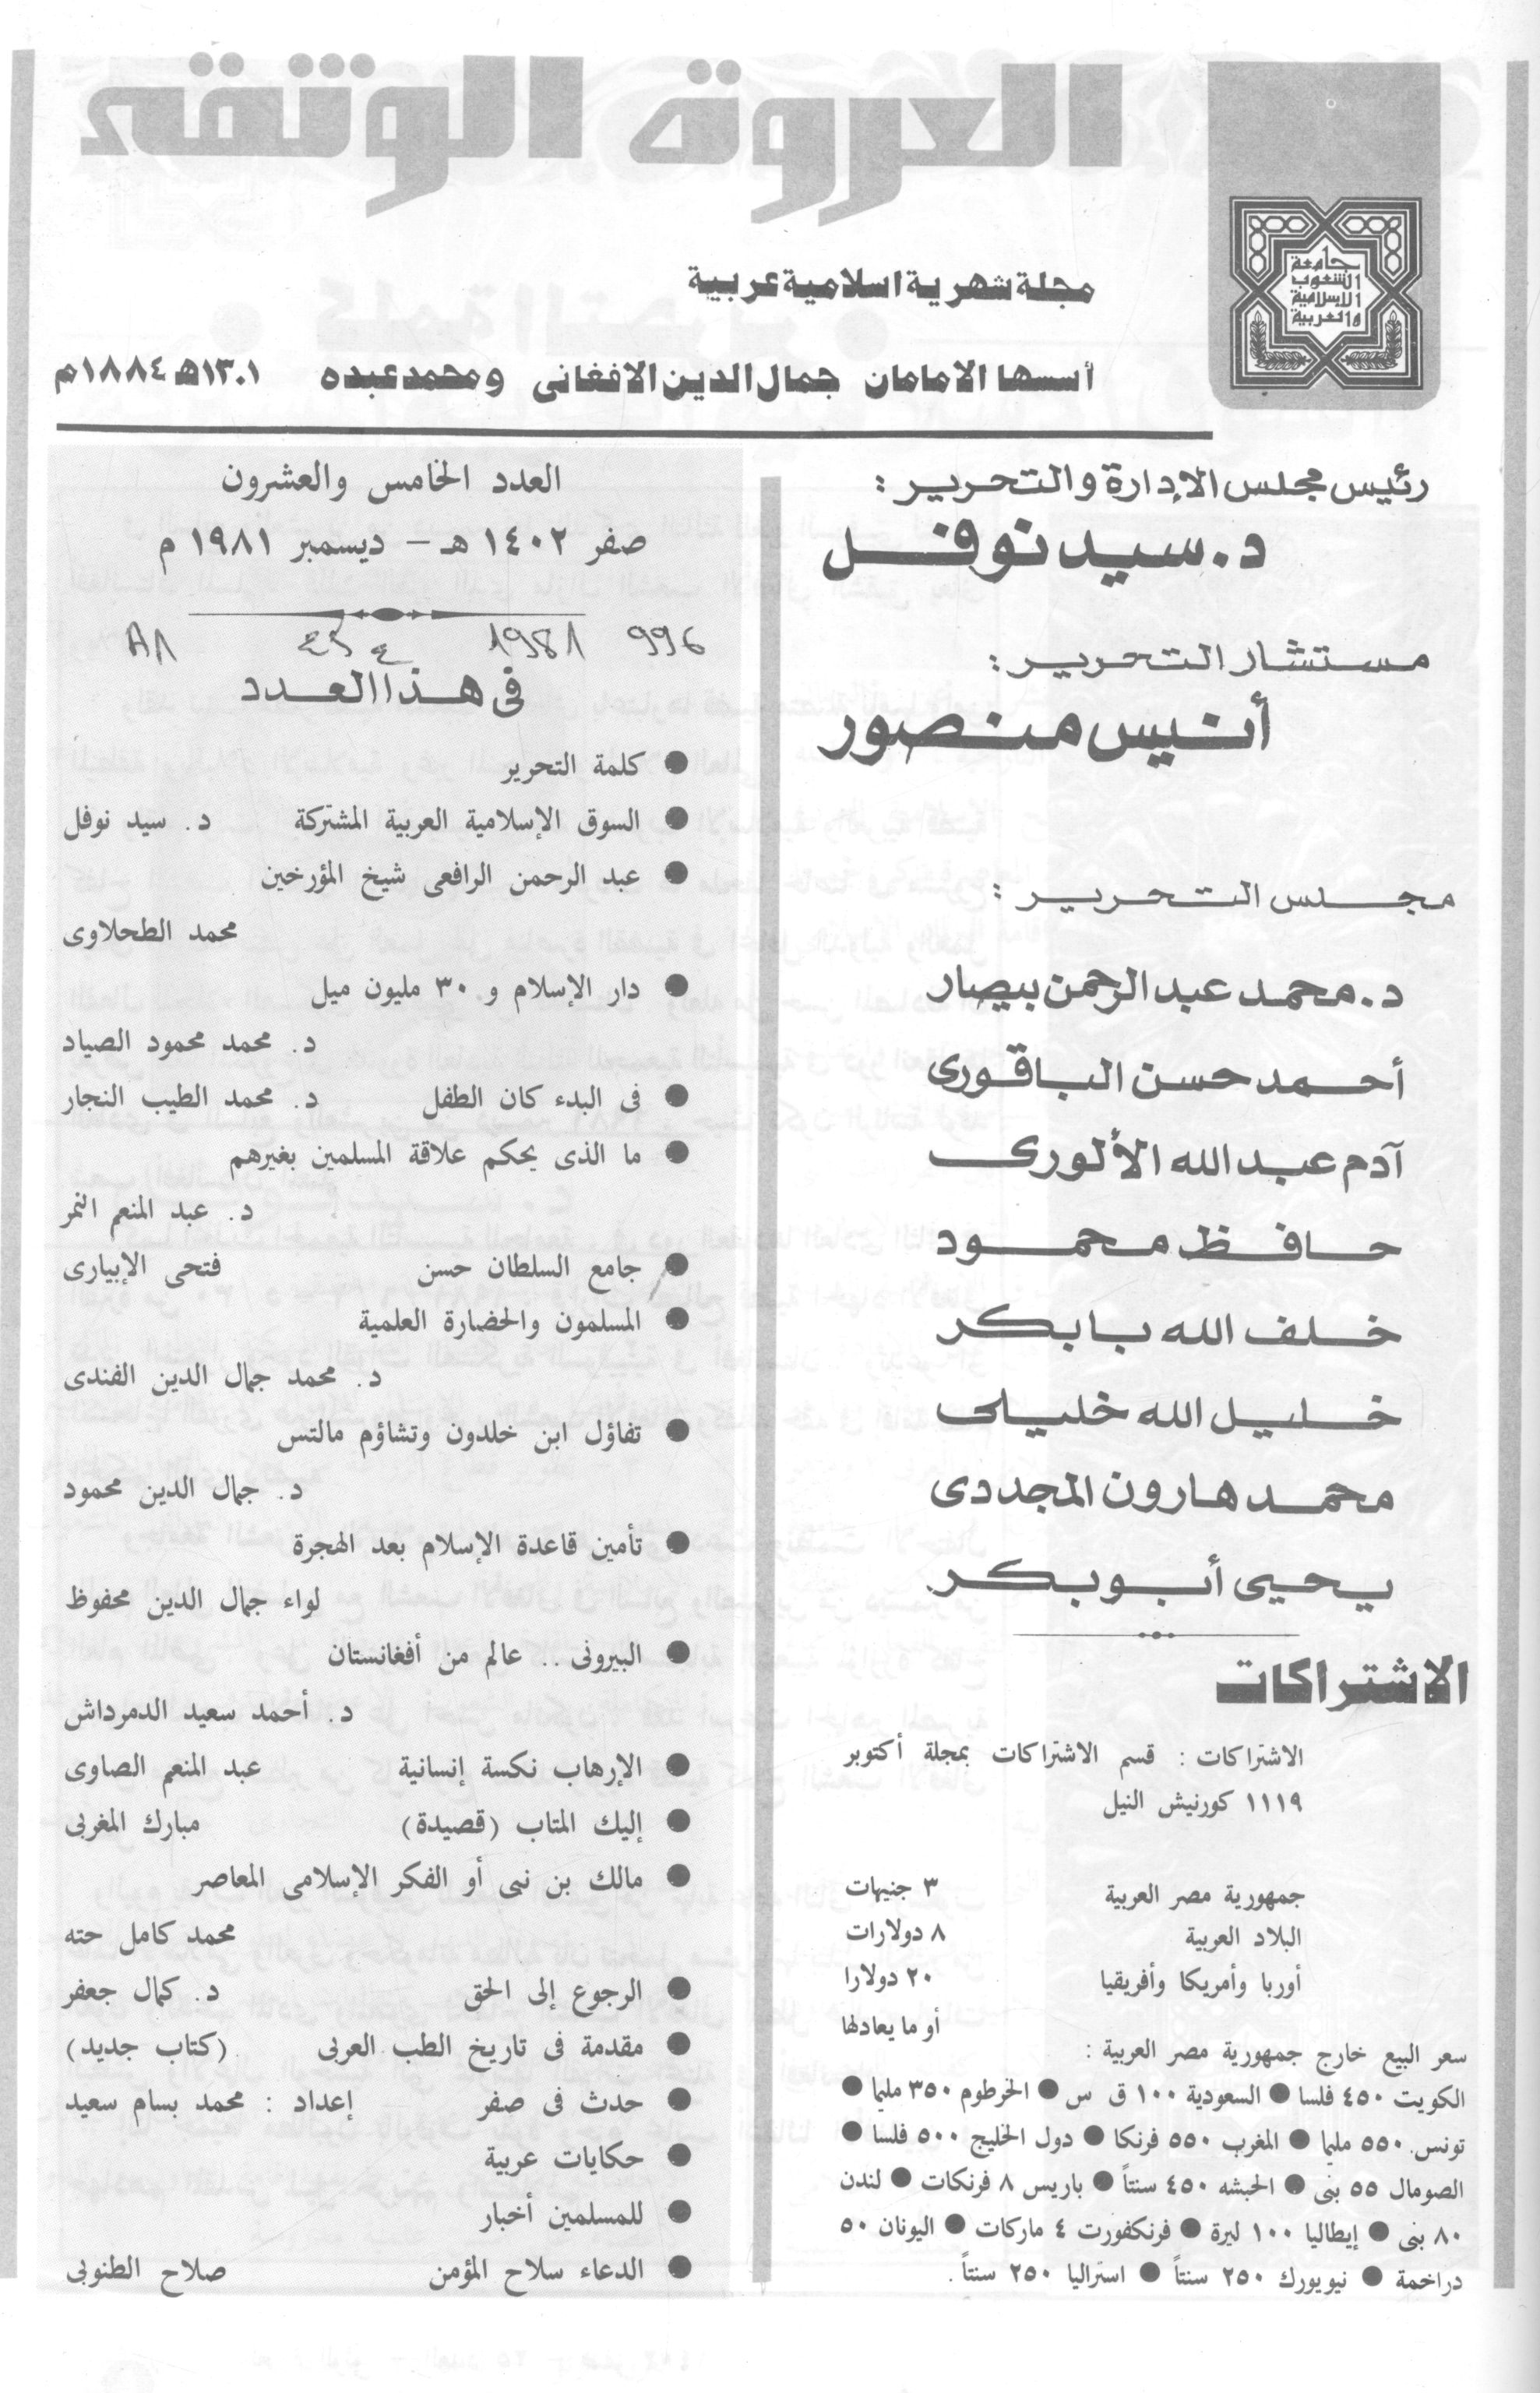 العروة الوثقى
جامعة
الشعوب
الإسلامية
والعربية
مجلة شهرية اسلامية عربية
أسسها الامامان جمال الدين الافغانى ومحمد عبده ١٣٠١ه ١٨٨٤م
رئيس مجلس الإدارة والتحرير :
د. سيد نوفل
مستشار التحرير :
أنيس منصور
مجلس التحرير :
د. محمد عبد الرحمن بيصار
أحمد حسن الباقورى
آدم عبد الله الألورى
حافظ محمود
خلف الله بابكر
خليل الله خليلى
محمد هارون المجددى
يحيى أبو بكر
الاشتراكات
الاشتراكات : قسم الاشتراكات بمجلة أكتوبر
١١١٩ كورنيش النيل
جمهورية مصر العربية ٣ جنيهات
البلاد العربية ٨ دولارات
أوربا وأمريكا وأفريقيا ٢٠ دولارا
أو ما يعادلها
سعر البيع خارج جمهورية مصر العربية :
الكويت ٤٥٠ فلسا ● السعودية ١٠٠ ق س ● الخرطوم ٣٥٠ مليما ●
تونس ٥٥٠ مليما ● المغرب ٥٥٠ فرنكا ● دول الخليج ٥٠٠ فلسا ●
الصومال ٥٥ بنى ● الحبشه ٤٥٠ سنتاً ● باريس ٨ فرنكات ● لندن
٨٠ بنى ● إيطاليا ١٠٠ ليرة ● فرنكفورت ٤ ماركات ● اليونان ٥٠
دراخمة ● نيويورك ٢٥٠ سنتاً ● استراليا ٢٥٠ سنتاً .
العدد الخامس والعشرون
صفر ١٤٠٢ هـ – ديسمبر ١٩٨١ م
996 1981
فى هذا العدد
● كلمة التحرير
● السوق الإسلامية العربية المشتركة د. سيد نوفل
● عبد الرحمن الرافعى شيخ المؤرخين
محمد الطحلاوى
● دار الإسلام و ٣٠ مليون ميل
د. محمد محمود الصياد
● فى البدء كان الطفل د. محمد الطيب النجار
● ما الذى يحكم علاقة المسلمين بغيرهم
د. عبد المنعم النمر
● جامع السلطان حسن فتحى الإبيارى
● المسلمون والحضارة العلمية
د. محمد جمال الدين الفندى
● تفاؤل ابن خلدون وتشاؤم مالتس
د. جمال الدين محمود
● تأمين قاعدة الإسلام بعد الهجرة
لواء جمال الدين محفوظ
● البيرونى .. عالم من أفغانستان
د. أحمد سعيد الدمرداش
● الإرهاب نكسة إنسانية عبد المنعم الصاوى
● إليك المتاب (قصيدة) مبارك المغربى
● مالك بن نبى أو الفكر الإسلامى المعاصر
محمد كامل حته
● الرجوع إلى الحق د. كمال جعفر
● مقدمة فى تاريخ الطب العربى (كتاب جديد)
● حدث فى صفر إعداد : محمد بسام سعيد
● حكايات عربية
● للمسلمين أخبار
● الدعاء سلاح المؤمن صلاح الطنوبى